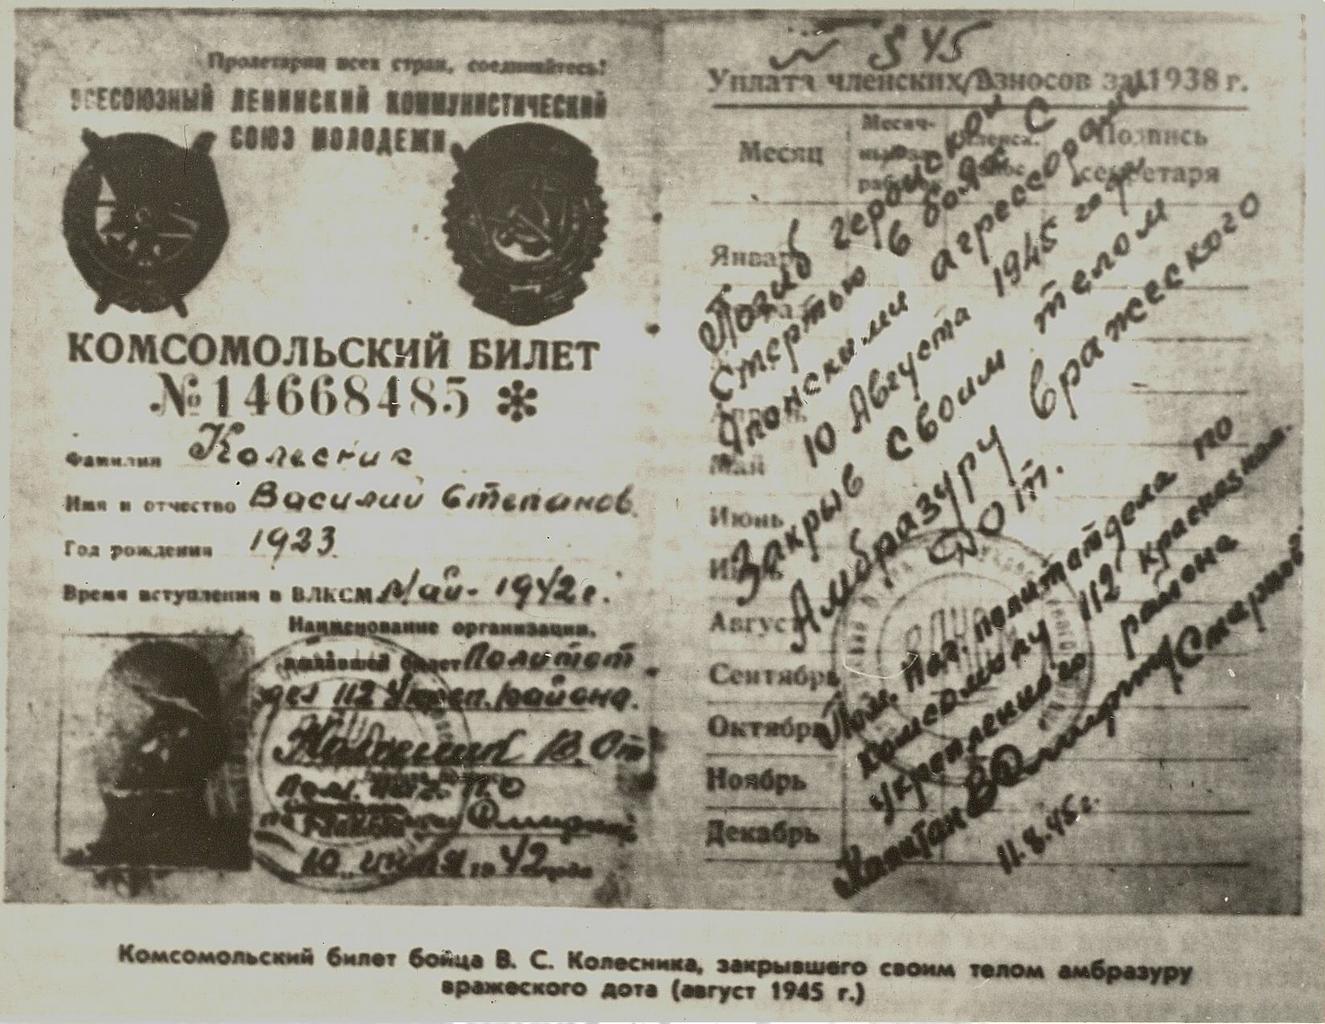 Пролетарии всех стран, соединяйтесь!
ВСЕСОЮЗНЫЙ ЛЕНИНСКИЙ КОММУНИСТИЧЕСКИЙ
СОЮЗ МОЛОДЕЖИ
КОМСОМОЛЬСКИЙ БИЛЕТ
№14668485 *
Фамилия Колесник
Имя и отчество Василий Степанов.
Год рождения 1923
Время вступления в ВЛКСМ Май - 1942 г.
Наименование организации,
выдавшей билет Политот
дел 112 Укреп. района.
Колесник В. Ст
Пом. нач. ПО
10 июля 1942 года
№ 545
Уплата членских взносов за 1938 г.
Месяц
Подпись
секретаря
Январь
Апрель
Май
Июнь
Август
Сентябрь
Октябрь
Ноябрь
Декабрь
Погиб геройской
смертью в боях с
Японскими агрессорами
10 Августа 1945 года
Закрыв своим телом
Амбразуру вражеского
Дот.
Пом. Нач. политотдела по
комсомолу 112 краснознам.
Укрепленного района
Капитан Смирнов
11.8.45 г.
Комсомольский билет бойца В. С. Колесника, закрывшего своим телом амбразуру
вражеского дота (август 1945 г.)